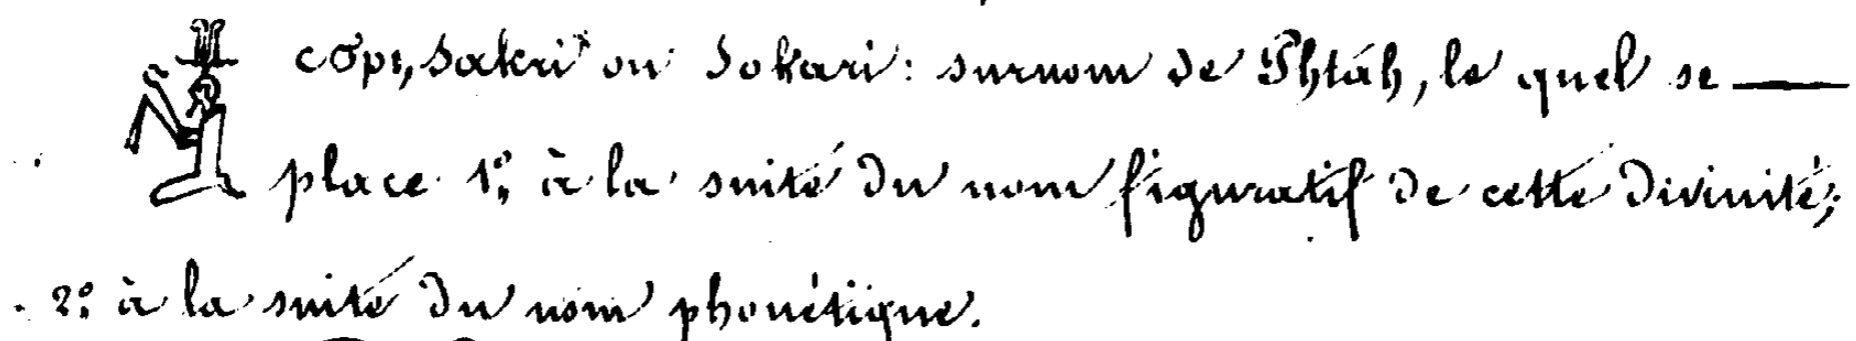 sakri ou Sokari: surnom de Phtáh, le quel se
place 1º, à la suite du nom figuratif de cette divinité;
2º à la suite du nom phonétique.